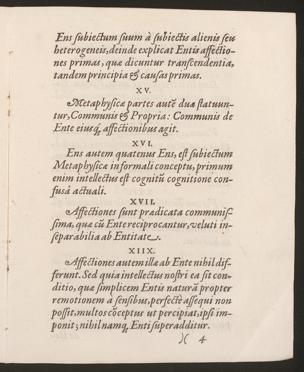 Ens subiectum suum à subiectis alienis seu
heterogeneis, deinde explicat Entis affectio-
nes primas, quæ dicuntur transcendentia,
tandem principia & causas primas.
XV.
Metaphysicæ partes autẽ duæ statuun-
tur, Communis & Propria: Communis de
Ente eiusq́, affectionibus agit.
XVI.
Ens autem quatenus Ens, est subiectum
Metaphysicæ in formali conceptu, primum
enim intellectus est cognitũ cognitione con-
fusâ actuali.
XVII.
Affectiones sunt prædicata communis-
sima, quæ cũ Ente reciprocantur, veluti in-
separabilia ab Entitate.
XIIX.
Affectiones autem illæ ab Ente nihil dif-
ferunt. Sed quia intellectus nostri ea sit con-
ditio, quæ simplicem Entis naturã propter
remotionem à sensibus, perfectè assequi non
possit, multos cõceptus ut percipiat, ipsi im-
ponit; nihil namq́, Enti superadditur.
)( 4